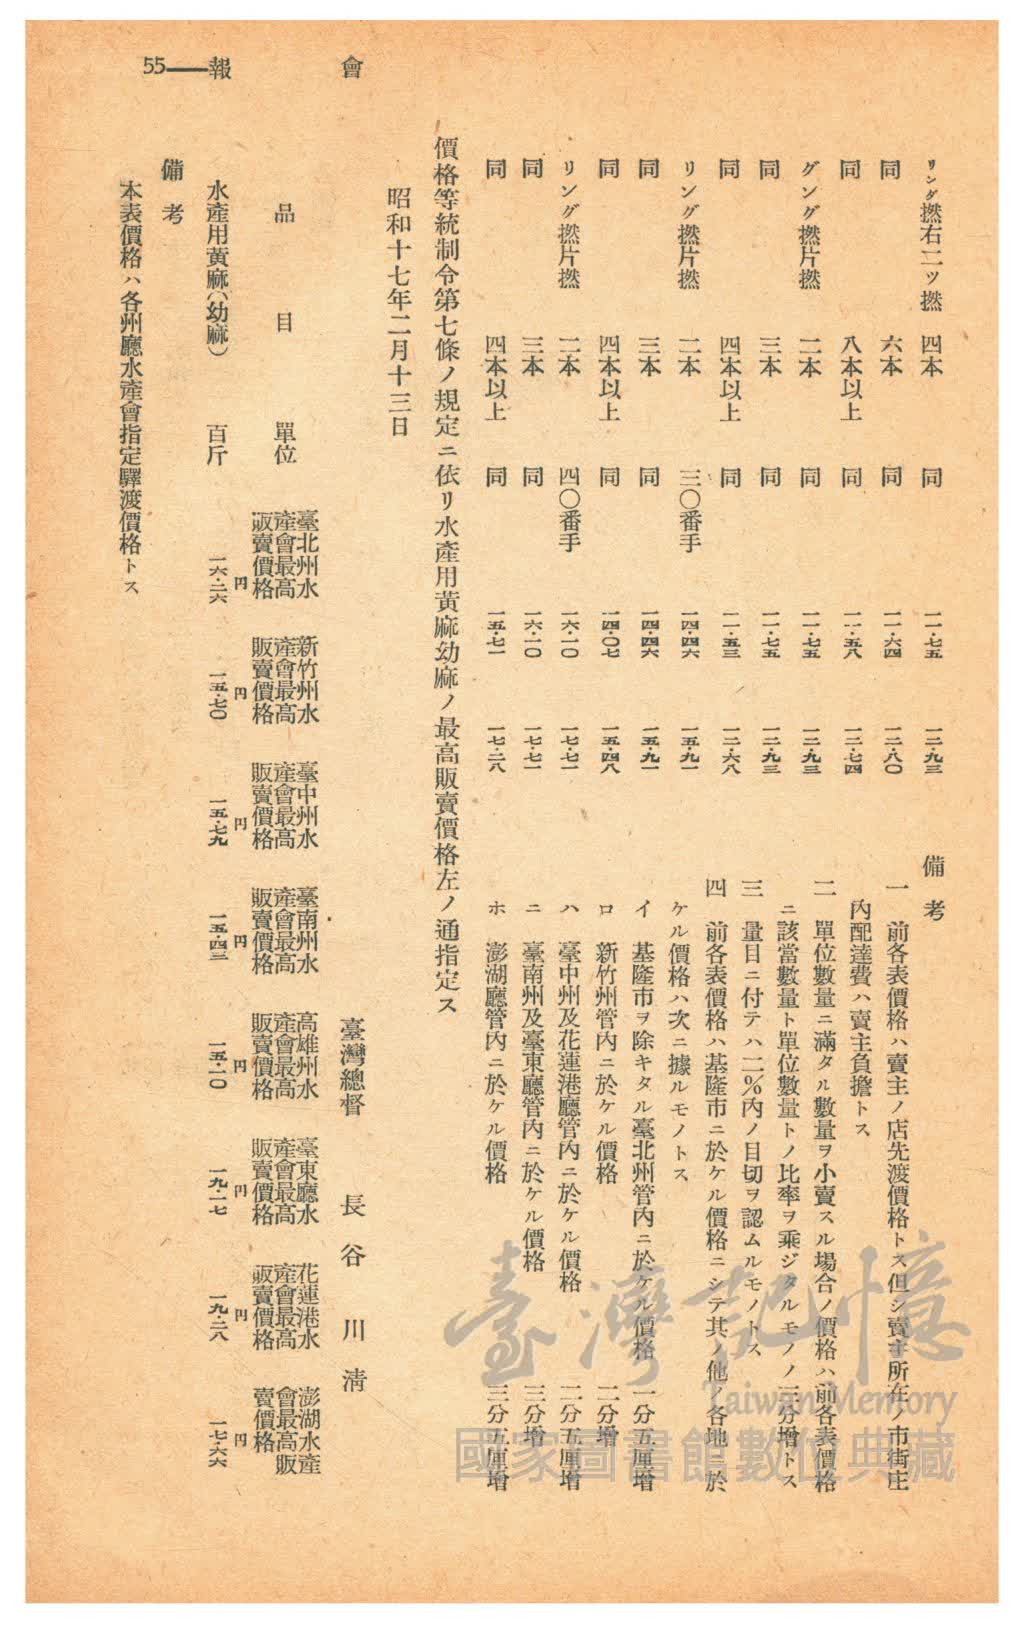 會報——55
リング撚右二ツ撚 四本 同 一一・七五 一二・九三
同 六本 同 一一・六四 一二・八〇
同 八本以上 同 一一・五八 一二・七四
グング撚片撚 二本 同 一一・七五 一二・九三
同 三本 同 一一・七五 一二・九三
同 四本以上 同 一一・五三 一二・六八
リング撚片撚 二本 三〇番手 一四・四六 一五・九一
同 三本 同 一四・四六 一五・九一
同 四本以上 同 一四・〇七 一五・四八
リング撚片撚 二本 四〇番手 一六・一〇 一七・七一
同 三本 同 一六・一〇 一七・七一
同 四本以上 同 一五・七一 一七・二八
備考
一 前各表價格ハ賣主ノ店先渡價格トス但シ賣主所在ノ市街庄
內配達費ハ賣主負擔トス
二 單位數量ニ滿タル數量ヲ小賣スル場合ノ價格ハ前各表價格
ニ該當數量ト單位數量トノ比率ヲ乘ジタルモノノ二分增トス
三 量目ニ付テハ二%內ノ目切ヲ認ムルモノトス
四 前各表價格ハ基隆市ニ於ケル價格ニシテ其ノ他ノ各地ニ於
ケル價格ハ次ニ據ルモノトス
イ 基隆市ヲ除キタル臺北州管內ニ於ケル價格 一分五厘增
ロ 新竹州管內ニ於ケル價格 二分增
ハ 臺中州及花蓮港廳管內ニ於ケル價格 二分五厘增
ニ 臺南州及臺東廳管內ニ於ケル價格 三分增
ホ 澎湖廳管內ニ於ケル價格 三分五厘增
價格等統制令第七條ノ規定ニ依リ水產用黃麻幼麻ノ最高販賣價格左ノ通指定ス
昭和十七年二月十三日
臺灣總督 長谷川淸
品目 單位 臺北州水產會最高販賣價格 新竹州水產會最高販賣價格 臺中州水產會最高販賣價格 臺南州水產會最高販賣價格 高雄州水產會最高販賣價格 臺東廳水產會最高販賣價格 花蓮港水產會最高販賣價格 澎湖水產會最高販賣價格
円 円 円 円 円 円 円 円
水產用黃麻(幼麻) 百斤 一六・二六 一五・七〇 一五・七九 一五・四三 一五・一〇 一九・一七 一九・二八 一七・六六
備考
本表價格ハ各州廳水產會指定驛渡價格トス
臺灣記憶
Taiwan Memory
國家圖書館數位典藏